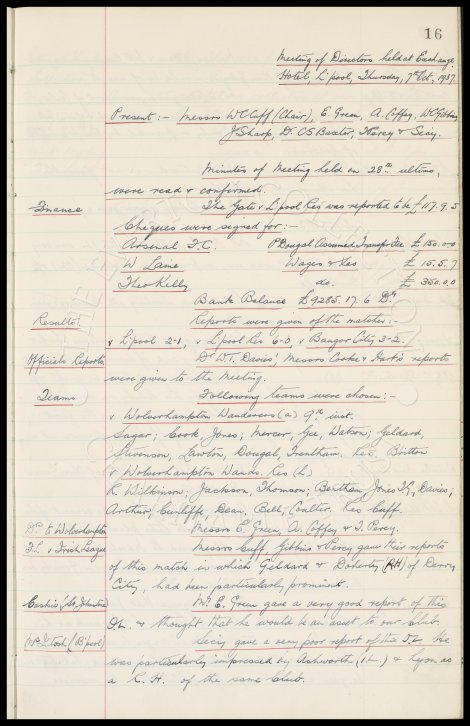 16
Meeting of Directors held at Exchange
Hotel, L'pool, Thursday, 7th Oct, 1937.
Present:- Messrs W C Cuff (Chair), E. Green, A. Coffey, W C Gibbins
J Sharp, Dr. C S Baxter, T Percy & Secy.
Minutes of Meeting held on 28th ultimo,
were read & confirmed.
Finance
The Gate v L'pool Res was reported to be £117.9.5
Cheques were signed for:-
Arsenal F.C. P Dougal Assumed Transfer Fee £ 150.0.0
W Laine Wages & Fees £ 15.5.7
Theo Kelly do. £ 350.0.0
Bank Balance £9285.17.6 Dr
Results
Reports were given of the matches:-
v L'pool 2-1, v L'pool Res 6-0, v Bangor City 3-2.
Officials Reports
Dr W.T. Davies', Messrs Cooke & Hart's reports
were given to the Meeting.
Teams
Following teams were chosen:-
v Wolverhampton Wanderers (a) 9th inst.
Sagar; Cook, Jones; Mercer, Gee, Watson; Geldard,
Stevenson, Lawton, Dougal, Trentham. Res Britton
v Wolverhampton Wands. Res (h)
R. Wilkinson; Jackson, Thomson; Bentham, Jones T G, Davies;
Arthur, Cunliffe, Dean, Bell, Coulter. Res Cuff.
Dr. to Wolverhampton
Messrs E. Green, A. Coffey & T. Percy.
F.L. v Irish League
Messrs Cuff, Gibbins & Percy gave their reports
of this match in which Geldard & Doherty (RH) of Derry
City, had been particularly prominent.
Mr. E. Green gave a very good report of this
O.L. & thought that he would be an asset to our Club.
McIntosh (B'pool)
Secy gave a very poor report of this I.L. He
was particularly impressed by Ashworth (I.L.) & Lyon as
a C.H. of the same club.